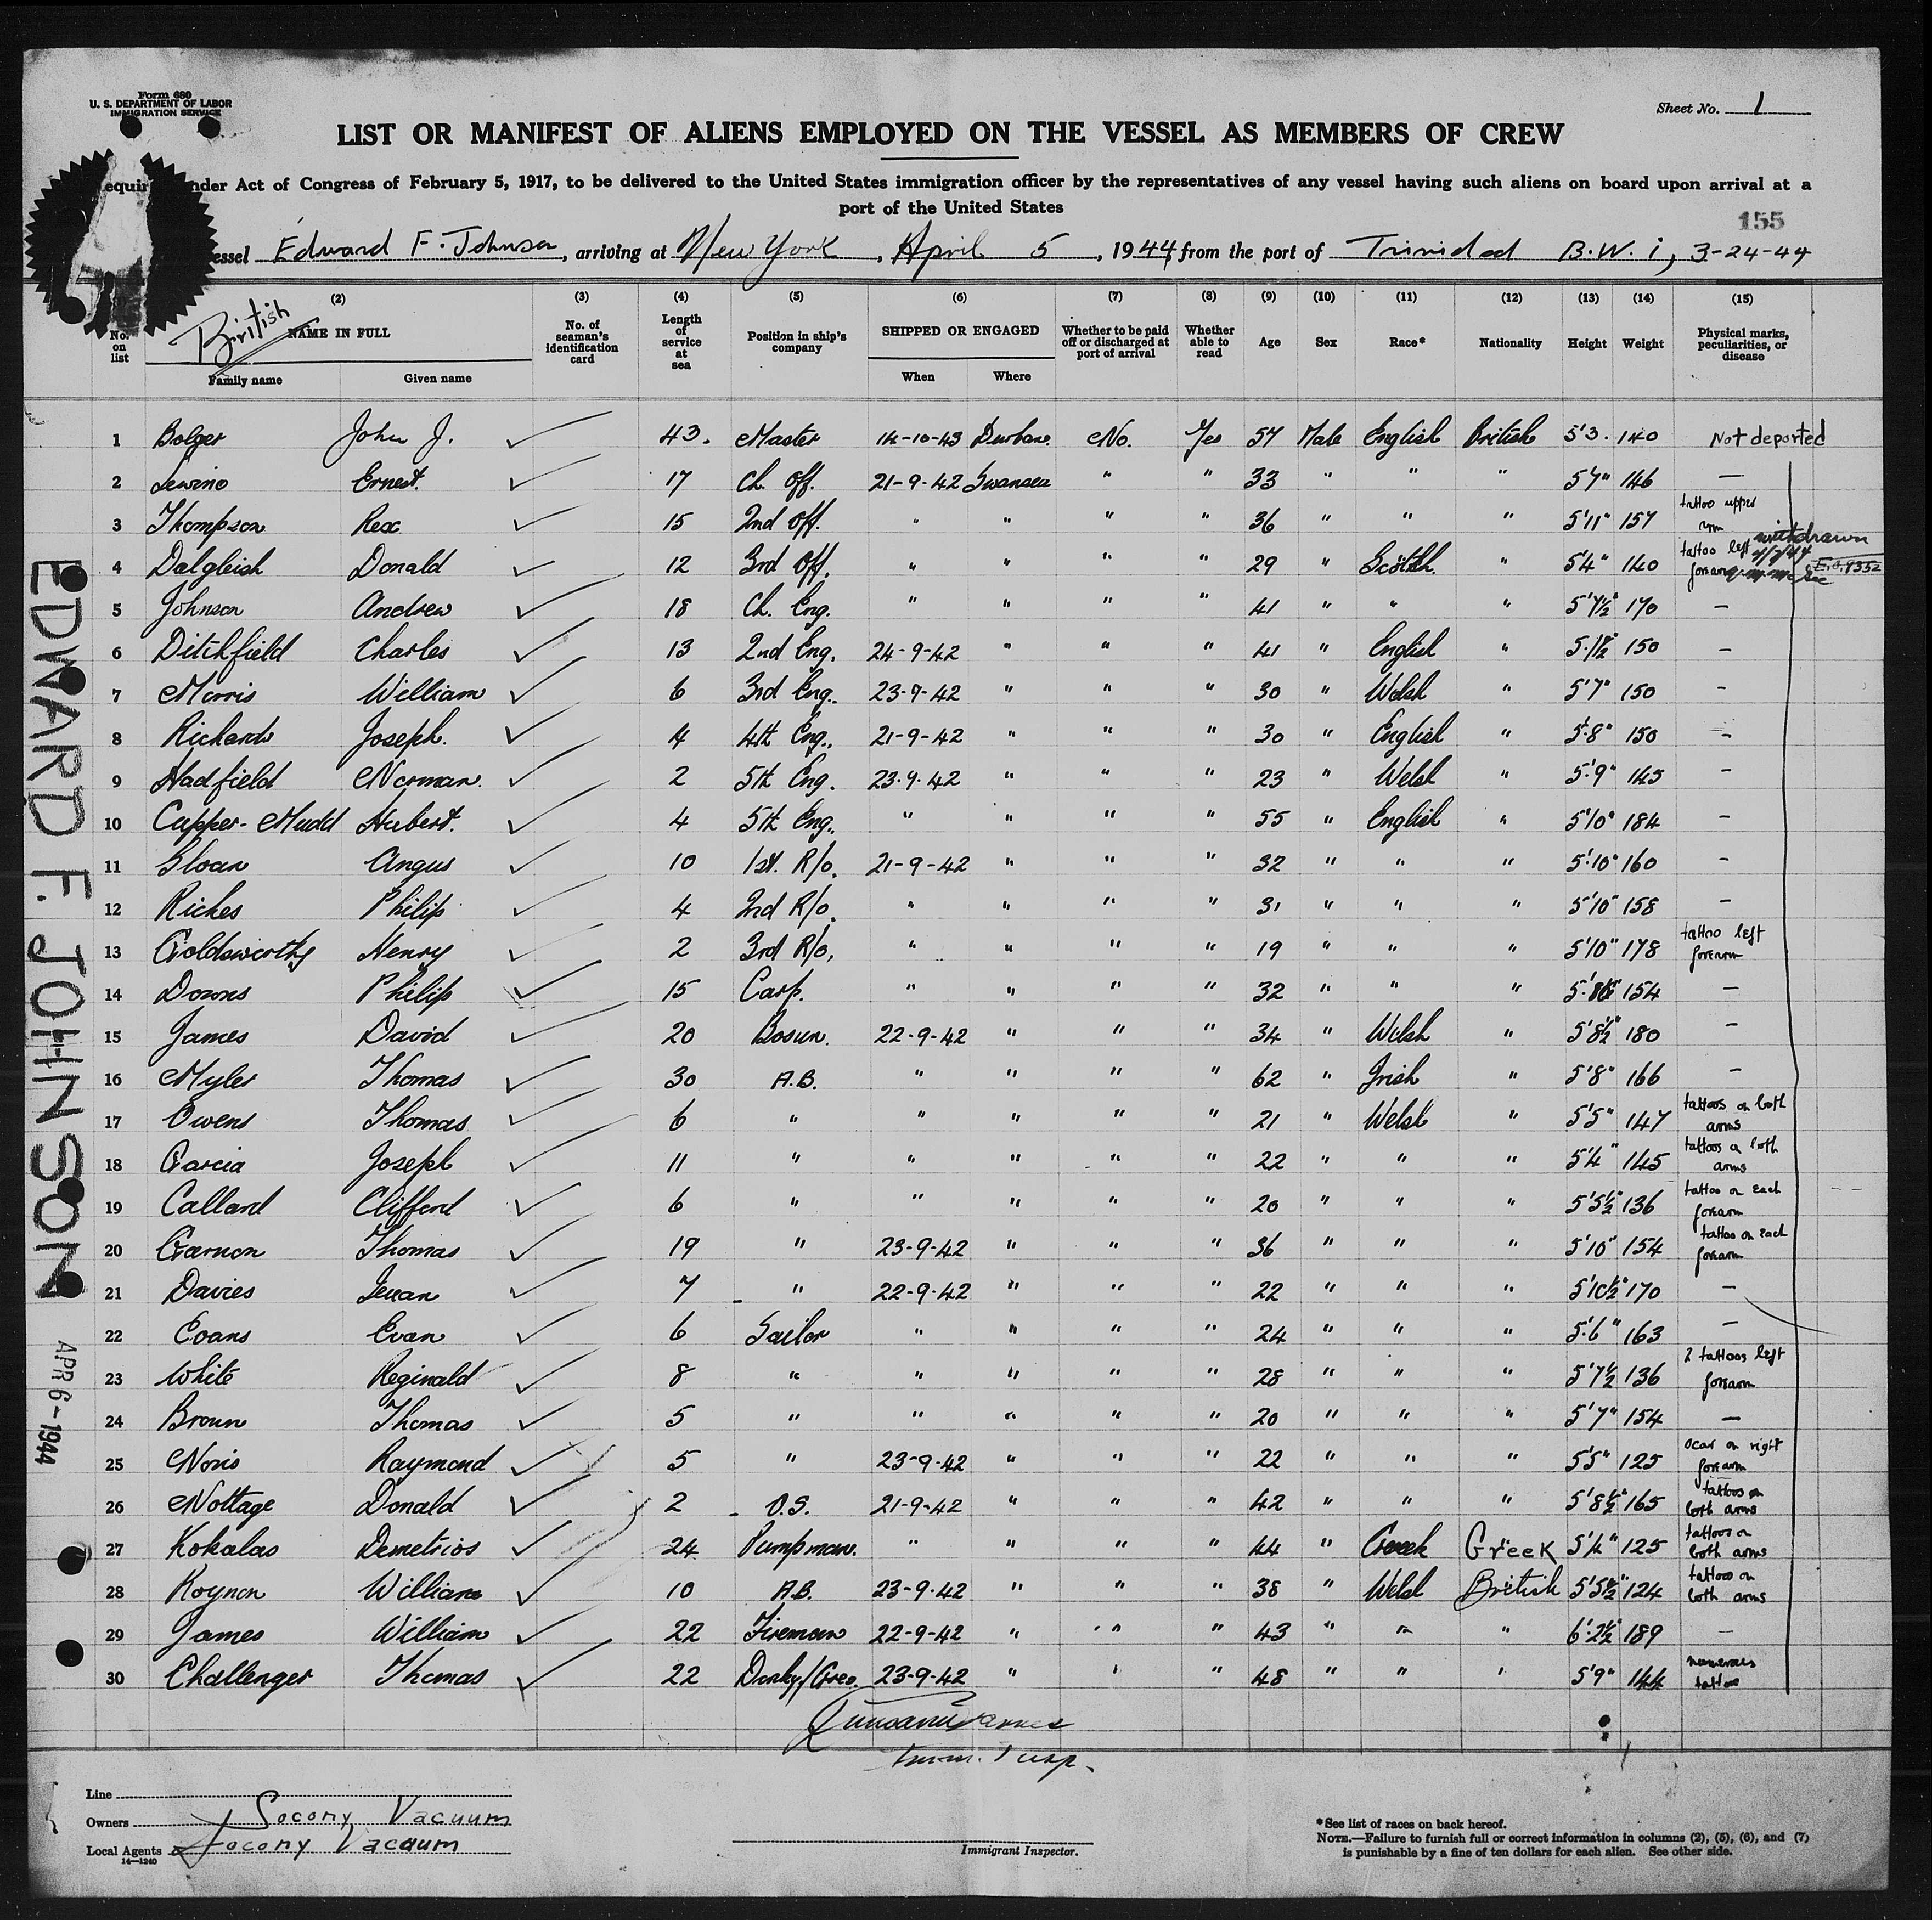 Form 680
U. S. DEPARTMENT OF LABOR
IMMIGRATION SERVICE
Sheet No. 1
LIST OR MANIFEST OF ALIENS EMPLOYED ON THE VESSEL AS MEMBERS OF CREW
equir nder Act of Congress of February 5, 1917, to be delivered to the United States immigration officer by the representatives of any vessel having such aliens on board upon arrival at a
port of the United States
155
essel Edward F. Johnson, arriving at New York, April 5, 1944, from the port of Trinidad B.W.i, 3-24-44
British
(2) (3) (4) (5) (6) (7) (8) (9) (10) (11) (12) (13) (14) (15)
No. on list NAME IN FULL Family name Given name No. of seaman's identification card Length of service at sea Position in ship's company SHIPPED OR ENGAGED When Where Whether to be paid off or discharged at port of arrival Whether able to read Age Sex Race* Nationality Height Weight Physical marks, peculiarities, or disease
1 Bolger John J. 43. Master 14-10-43 Durban No. Yes 57 Male English British 5'3. 140 Not deported
2 Ernest. 17 Ch. Off. 21-9-42 Swansea " " 33 " " " 5'7" 146 —
3 Thompson Rex 15 2nd Off. " " " " 36 " " " 5'11" 157 tattoo upper arm
4 Dalgleish Donald 12 3rd Off. " " " " 29 " Scotch " 5'4" 140 tattoo left forearm withdrawn 4/7/44 E.O. 9352
5 Johnson Andrew 18 Ch. Eng. " " " " 41 " " " 5'7½" 170 —
6 Ditchfield Charles 13 2nd Eng. 24-9-42 " " " 41 " English " 150 —
7 Morris William 6 3rd Eng. 23-9-42 " " " 30 " Welsh " 5'7" 150 —
8 Richards Joseph. 4 4th Eng. 21-9-42 " " " 30 " English " 5'8" 150 —
9 Hadfield Norman. 2 5th Eng. 23.9.42 " " " 23 " Welsh " 5'9" 145 —
10 Cupper-Mudd Hubert. 4 5th Eng. " " " " 55 " English " 5'10" 184 —
11 Sloan Angus 10 1st. R/o. 21-9-42 " " " 32 " " " 5'10" 160 —
12 Riches Philip 4 2nd R/o. " " " " 31 " " " 5'10" 158 —
13 Goldsworthy Henry 2 3rd R/o. " " " " 19 " " " 5'10" 178 tattoo left forearm
14 Downs Philip 15 Carp. " " " " 32 " " " 154 —
15 James David 20 Bosun. 22-9-42 " " " 34 " Welsh " 5'8½" 180 —
16 Myler Thomas 30 A.B. " " " " 62 " Irish " 5'8" 166 —
17 Owens Thomas 6 " " " " " 21 " Welsh " 5'5" 147 tattoos on both arms
18 Garcia Joseph 11 " " " " " 22 " " " 5'4" 145 tattoos on both arms
19 Callard Clifford 6 " " " " " 20 " " " 5'5½" 136 tattoo on each forearm
20 Garnon Thomas 19 " 23-9-42 " " " 36 " " " 5'10" 154 tattoo on each forearm
21 Davies Ieuan 7 " 22-9-42 " " " 22 " " " 5'10½" 170 —
22 Evans Evan 6 Sailor " " " " 24 " " " 5'6" 163 —
23 White Reginald 8 " " " " " 28 " " " 5'7½ 136 2 tattoos left forearm
24 Brown Thomas 5 " " " " " 20 " " " 5'7" 154 —
25 Noris Raymond 5 " 23-9-42 " " " 22 " " " 5'5" 125 scar on right forearm
26 Nottage Donald 2 O.S. 21-9-42 " " " 42 " " " 5'8½" 165 tattoos on both arms
27 Kokalas Demetrios 24 Pumpman. " " " " 44 " Greek Greek 5'4" 125 tattoos on both arms
28 Roynon William 10 A.B. 23-9-42 " " " 38 " Welsh British 5'5½" 124 tattoos on both arms
29 James William 22 Fireman 22-9-42 " " " 43 " " " 6'2½ 189 —
30 Challenger Thomas 22 Donky/Grea. 23-9-42 " " " 48 " " " 5'9" 144 numerous tattoo
Imm. Insp.
Line
Owners Socony Vacuum
Local Agents Socony Vacuum
14—1240
Immigrant Inspector.
*See list of races on back hereof.
NOTE.—Failure to furnish full or correct information in columns (2), (5), (6), and (7)
is punishable by a fine of ten dollars for each alien. See other side.
EDWARD F. JOHNSON
APR 6 - 1944